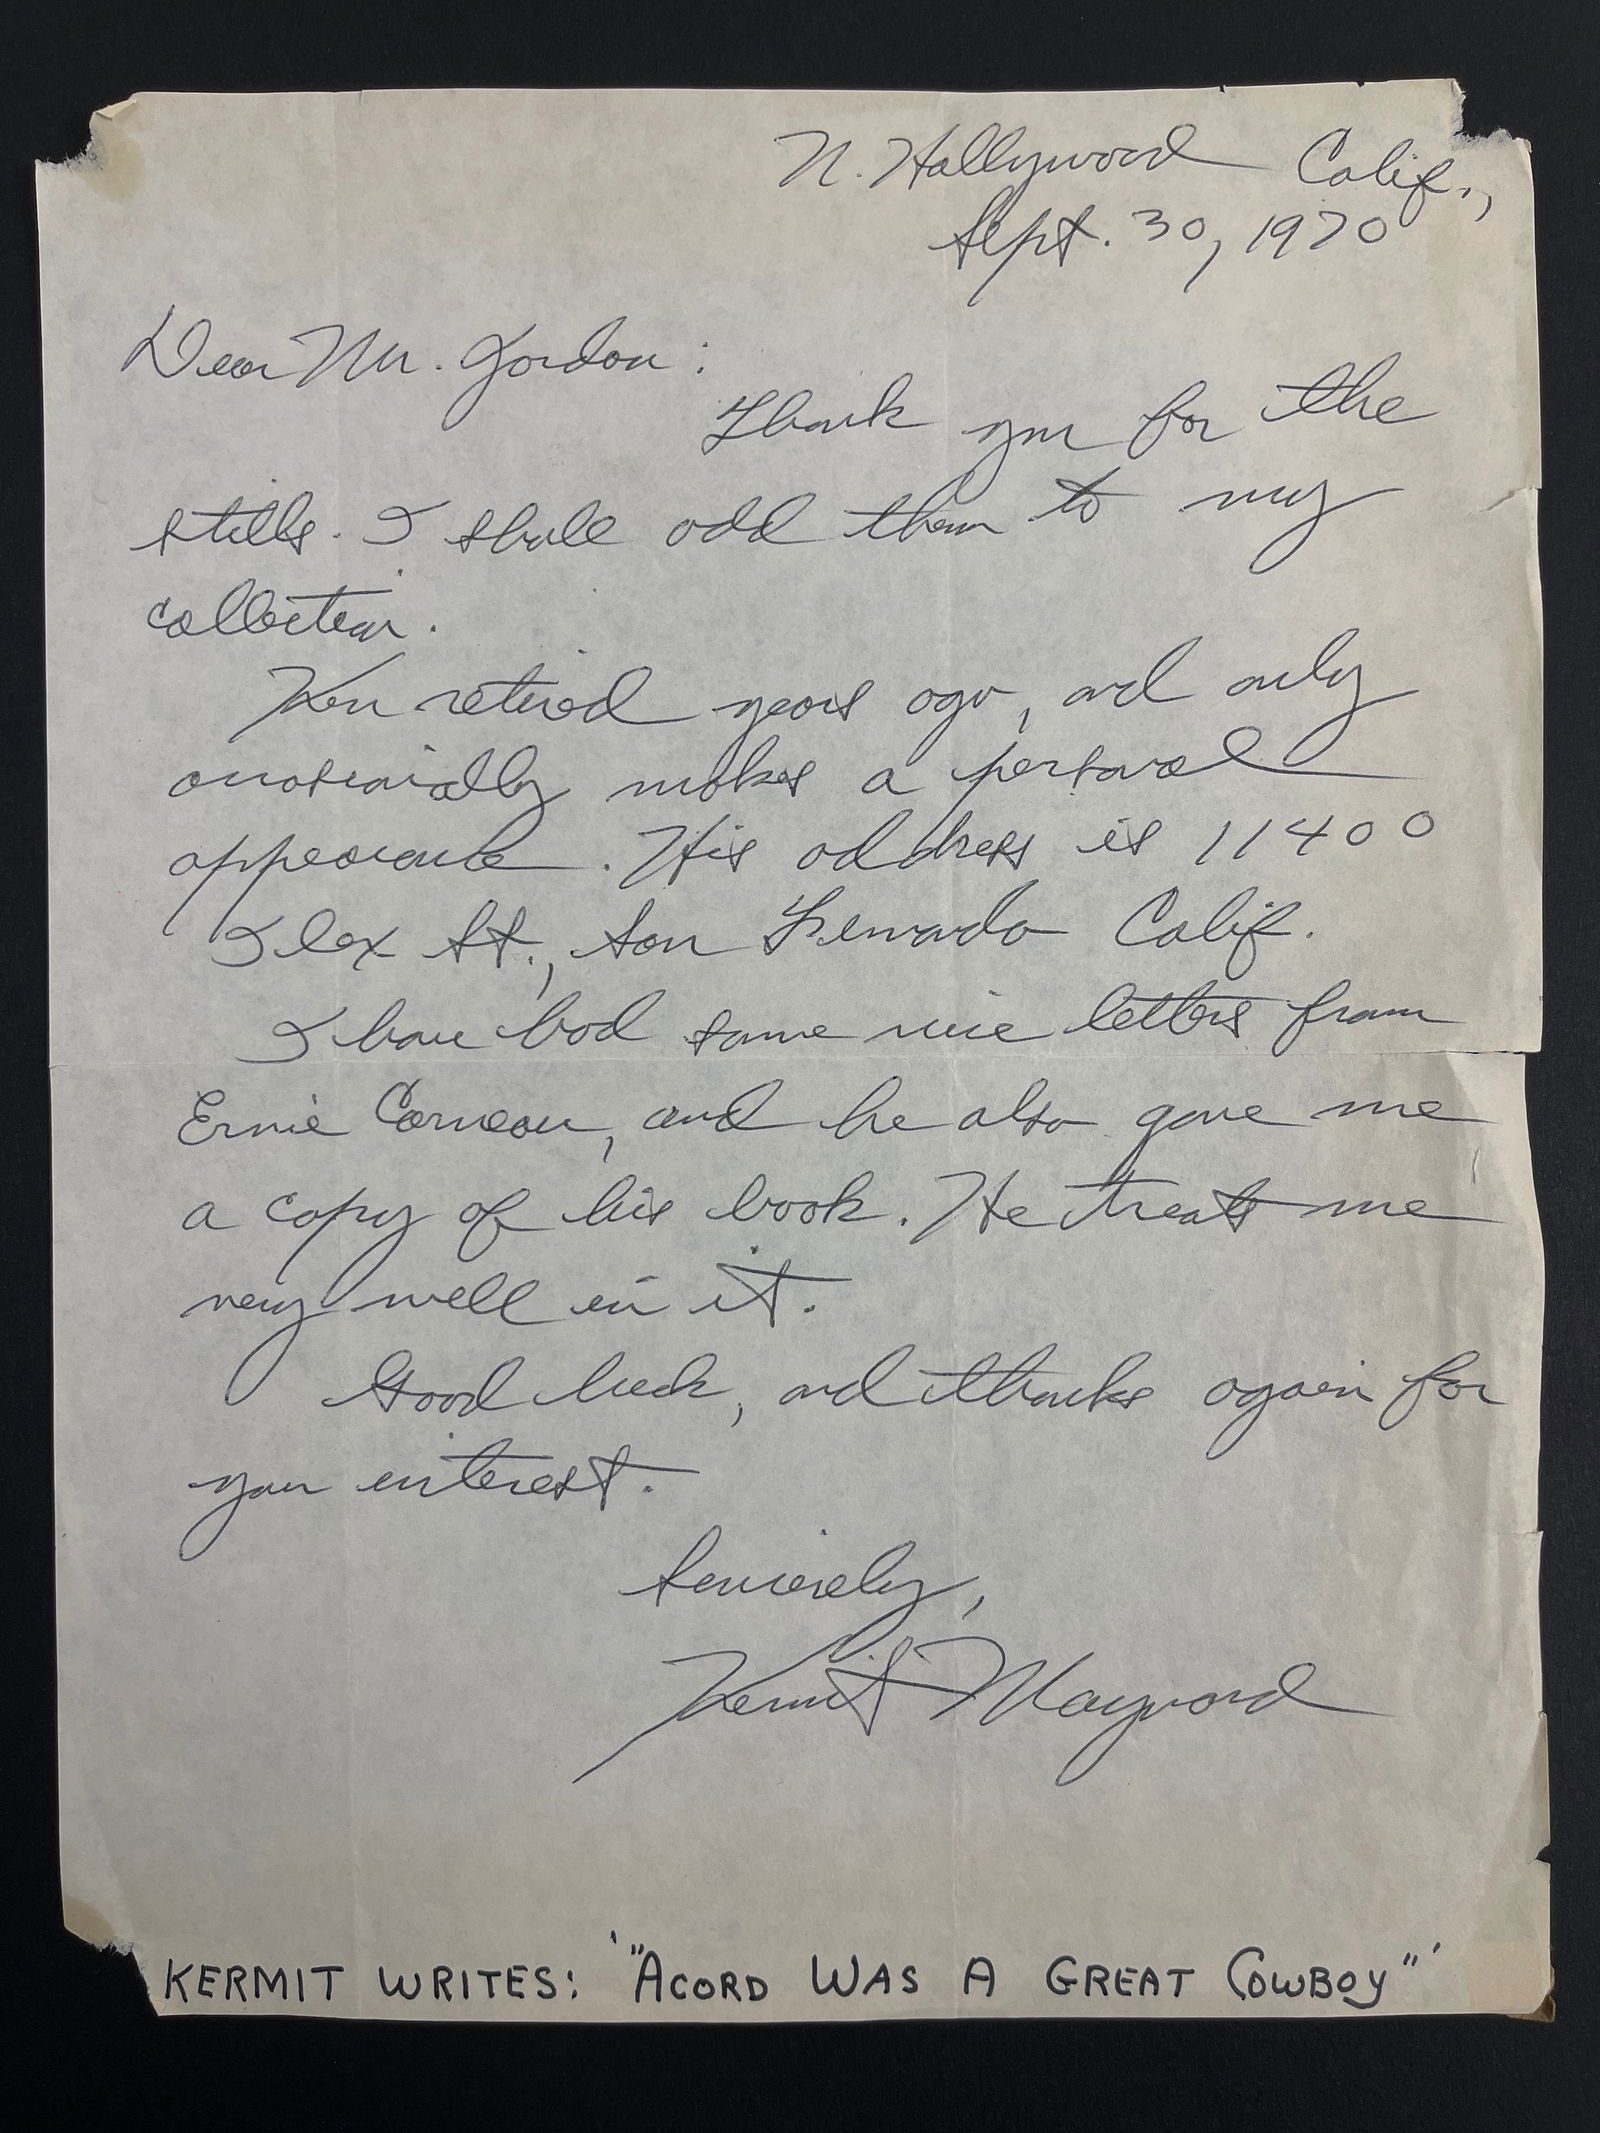 N. Hollywood Calif.,
Sept. 30, 1970
Dear Mr. Gordon:
Thank you for the
stills. I shall add them to my
collection.
Ken retired years ago, and only
occasionally makes a personal
appearance. His address is 11400
Ilex St., San Fernando Calif.
I have had some nice letters from
Ernie Corneau, and he also gave me
a copy of his book. He treats me
very well in it.
Good luck, and thanks again for
your interest.
Sincerely,
Kermit Maynard
KERMIT WRITES: '"ACORD WAS A GREAT COWBOY"'